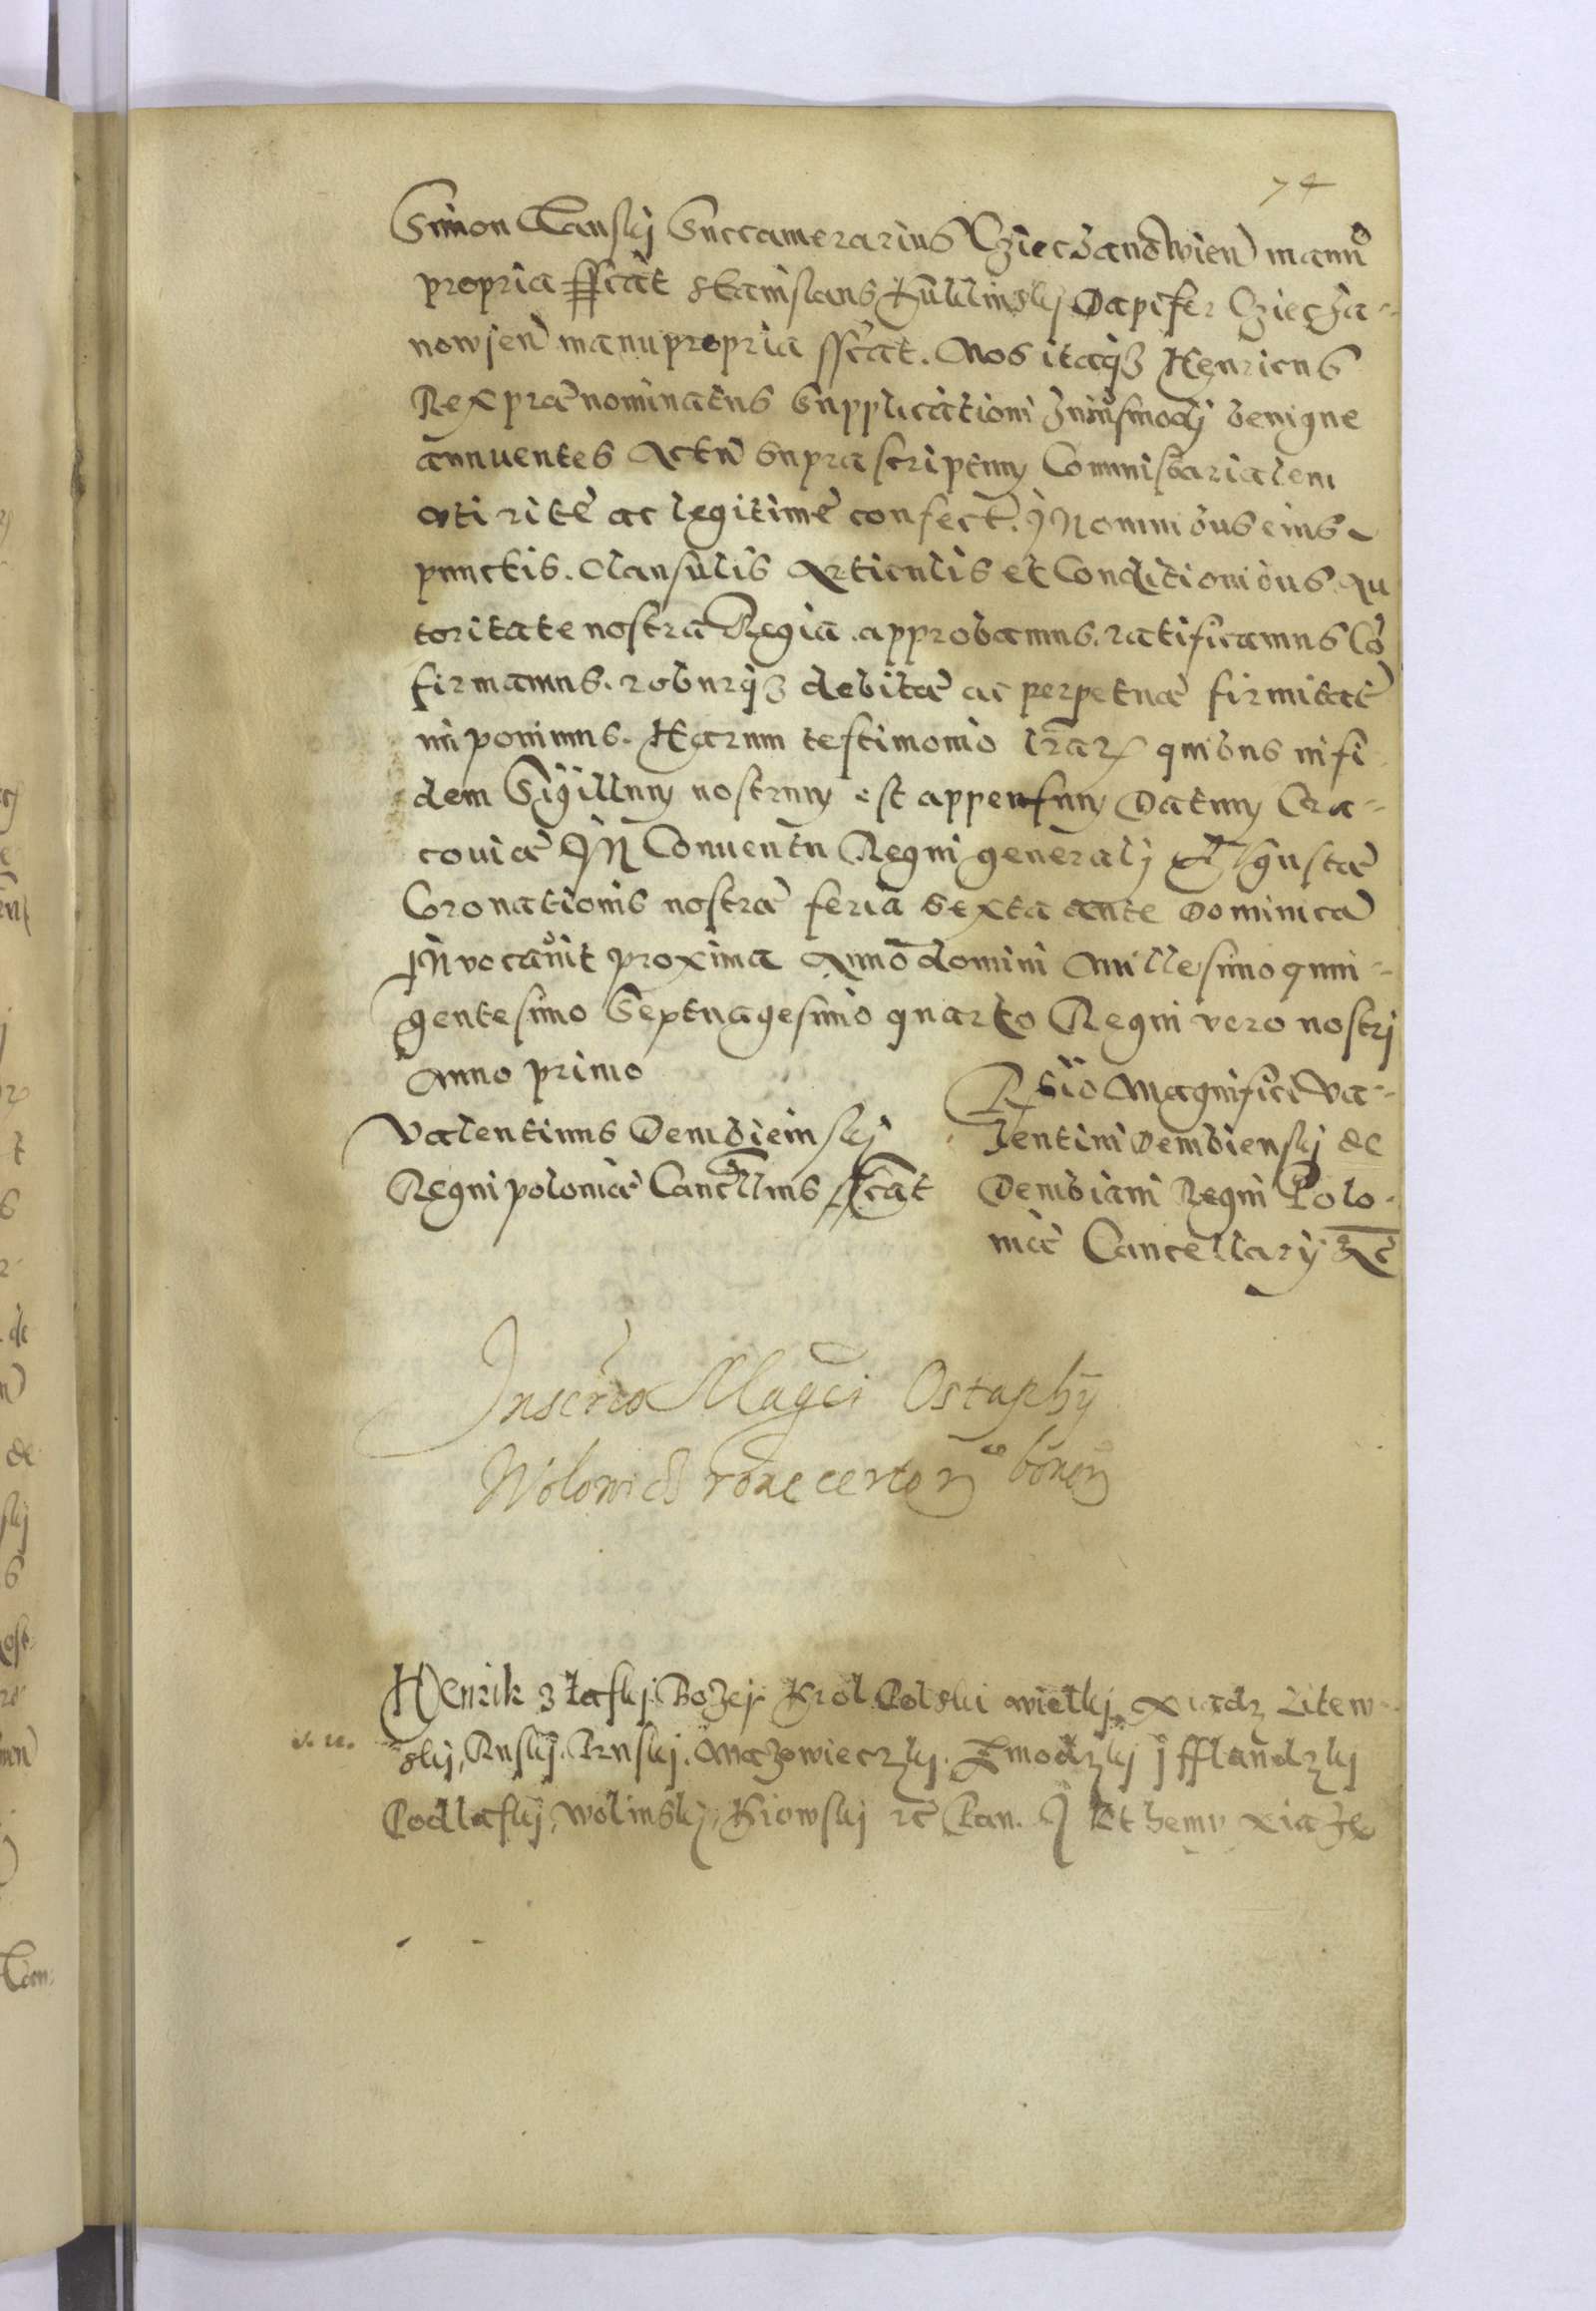 74
Simon Clanskj Succamerarius Cziechanowien manu
propria sscât Stanislaus Kuklinskj Dapifer Cziecha-
nowien manu propria sscât. Nos itaqз Henricus
Rex prænominatus Supplicationi huiusmodj benigne
annuentes Actu supra scriptum Commissarialem
uti rite ac legitime confect. In omnibus eius
punctis. Clausulis Articulis et Conditionibus. Au
toritate nostra Regia approbamus. ratificamus Co
firmamus. roburqз debitæ ac perpetuæ firmitatē
imponimus. Harum testimonio lrar quibus infi
dem Sigillum nostrum est appensum Datum Cra-
coviæ In Conventu Regni generalj
Coronationis nostræ feria sexta ante Dominica
Invocavit proxima Anno domini Millesimo quin-
gentesimo Septuagesimo quarto Regni vero nostrj
anno primo
Valentinus Dembieinskj
Regni poloniæ Cancllrius sscât
Rtio Magnifici Va-
lentini Dembienskj de
Dembiani Regni Polo-
niæ Cancellarij &c
Inscrco Magci Ostaphij
Wolowicz rone certor bonor
Henrik z łaskj Bozej Krol Polski wielkj Xiadz Litew-
skij, Ruskij. Pruskj. Mazowieczkj. Zmodzkj j fflandzkj
Podlaskj, Wolinskj, Kiowskj &c Pan. J kthemv xiaze